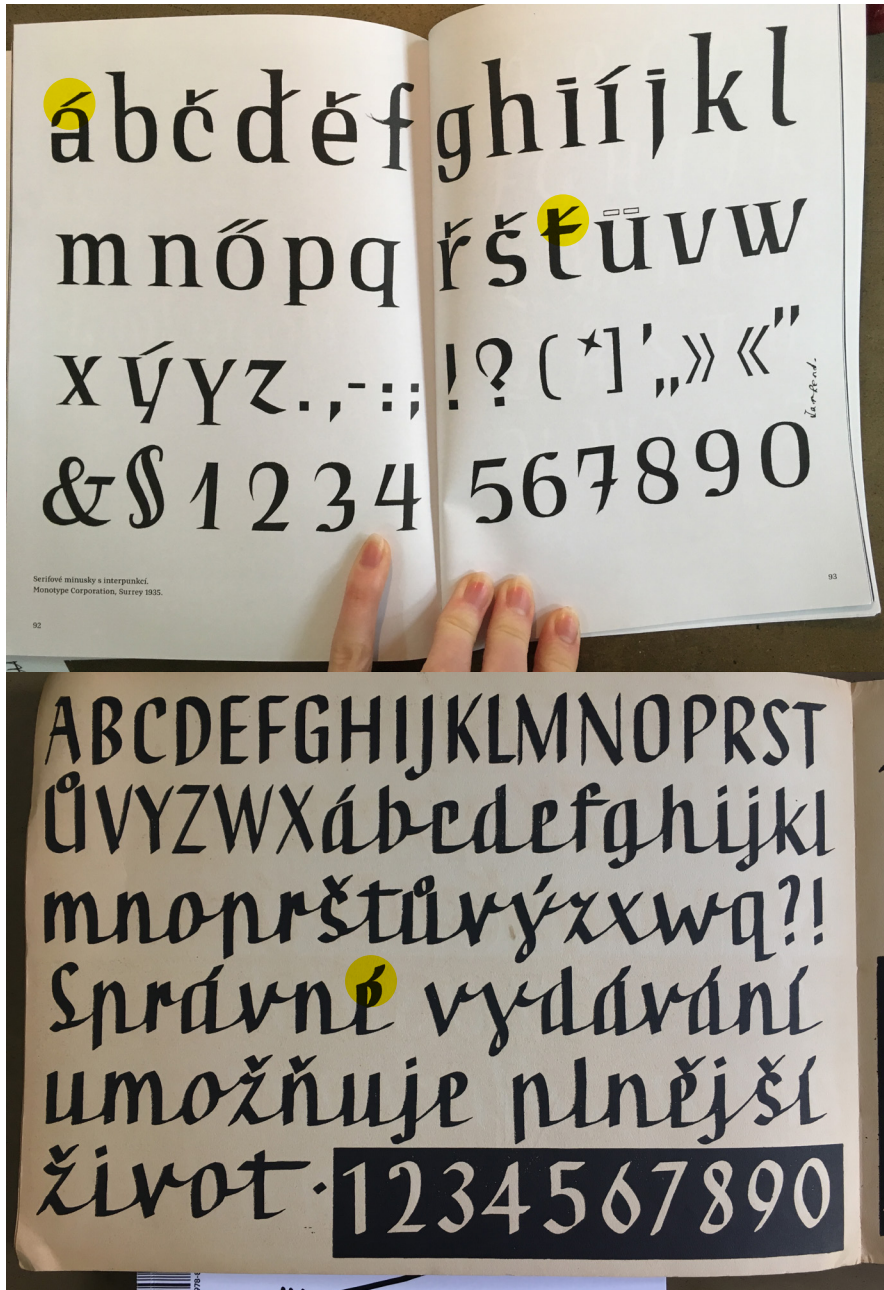 á b č ď ě f g h i í j k l
m n ő p q ř š ť ü v w
x ý y z . , - : ; ! ? ( * ] ’ „ » « ”
& § 1 2 3 4 5 6 7 8 9 0
Serifové minusky s interpunkcí.
Monotype Corporation, Surrey 1935.
92
93
ABCDEFGHIJKLMNOPRST
ŮVYZWXábcdefghijkl
mnoprštůvýzxwq?!
Správné vydávání
umožňuje plnější
život · 1234567890